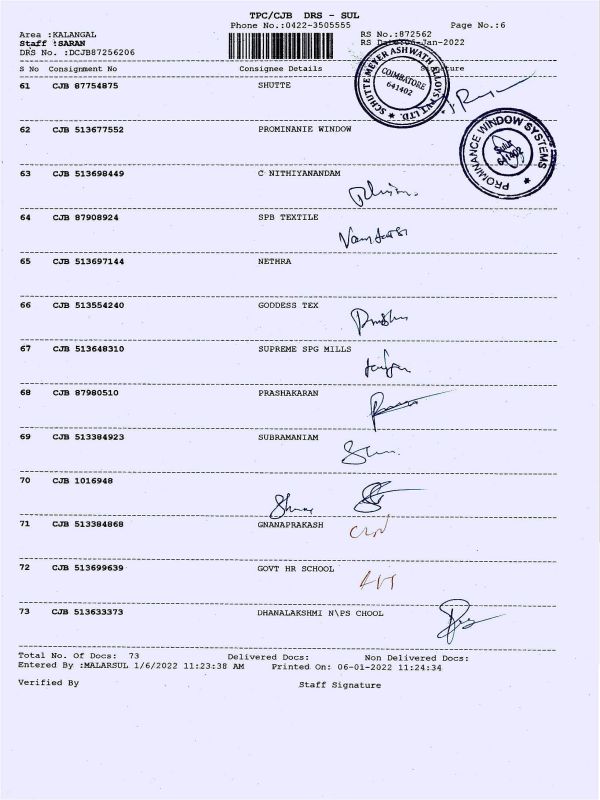 TPC/CJB DRS - SUL
Phone No.:0422-3505555 Page No.:6
Area :KALANGAL RS No.:872562
Staff :SARAN RS Date:06-Jan-2022
DRS No. :DCJB87256206
S No Consignment No Consignee Details Signature
61 CJB 87754875 SHUTTE
SCHUTTE MEYER ASHWATH ALLOYS PVT LTD.
COIMBATORE
641402
62 CJB 513677552 PROMINANIE WINDOW
PROMINANCE WINDOW SYSTEMS
63 CJB 513698449 C NITHIYANANDAM
64 CJB 87908924 SPB TEXTILE
65 CJB 513697144 NETHRA
66 CJB 513554240 GODDESS TEX
67 CJB 513648310 SUPREME SPG MILLS
68 CJB 87980510 PRASHAKARAN
69 CJB 513384923 SUBRAMANIAM
70 CJB 1016948
71 CJB 513384868 GNANAPRAKASH
72 CJB 513699639 GOVT HR SCHOOL
73 CJB 513633373 DHANALAKSHMI N\PS CHOOL
Total No. Of Docs: 73 Delivered Docs: Non Delivered Docs:
Entered By :MALARSUL 1/6/2022 11:23:38 AM Printed On: 06-01-2022 11:24:34
Verified By Staff Signature